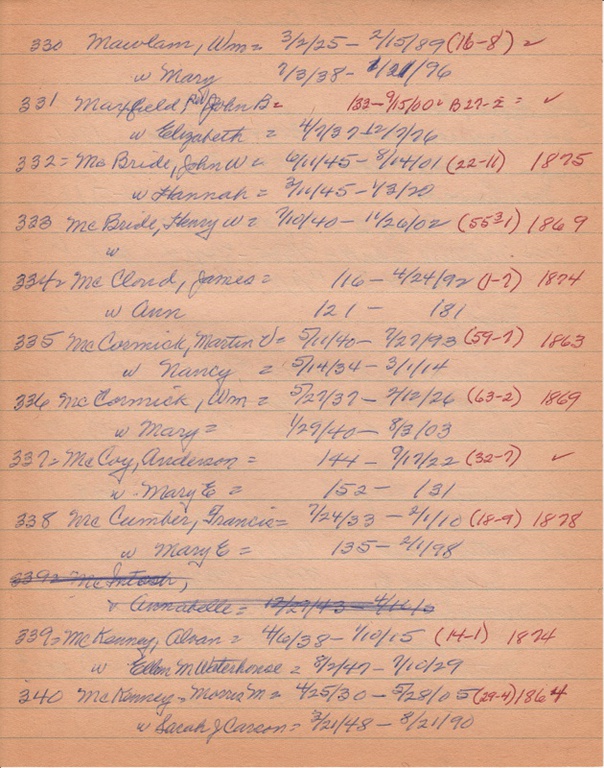 330 Mawlam, Wm = 3/2/25 - 2/15/89 (16-8) ✓
w Mary 7/3/38 - /96
331 Mayfield, John B = 133 - 9/15/00 B27-2 = ✓
w Elizabeth = 4/7/37 - 12/7/76
332 = McBride, John W = 6/11/45 - 8/14/01 (22-11) 1875
w Hannah = 3/11/45 - 1/3/20
333 McBride, Henry W = 7/10/40 - 11/26/02 (55-31) 1869
w
334 = McCloud, James = /16 - 4/24/92 (1-7) 1874
w Ann /21 - /81
335 McCormick, Martin V = 5/11/40 - 7/27/93 (59-7) 1863
w Nancy = 5/14/34 - 3/1/14
336 McCormick, Wm = 5/27/37 - 2/12/26 (63-2) 1869
w Mary = 1/29/40 - 8/3/03
337 = McCoy, Anderson = /44 - 9/17/22 (32-7) ✓
w. Mary E = /52 - /31
338 McCumber, Francis = 7/24/33 - 2/1/10 (18-9) 1878
w Mary E = /35 - 2/1/98
339 = McIntosh,
w Annabelle = 12/27/43 -
339 = McKenney, Alvan = 4/6/38 - 1/10/15 (14-1) 1874
w Ellen M Waterhouse = 8/2/47 - 7/10/29
340 McKenney - Morris M = 4/25/30 - 5/28/05 (29-4) 1864
w Sarah J Carson = 3/21/48 - 8/21/90